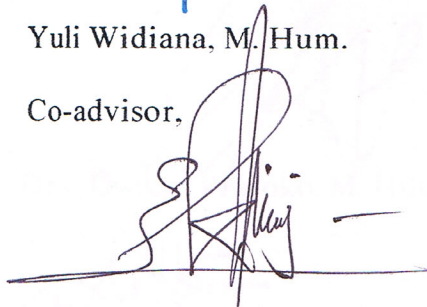 Yuli Widiana, M. Hum.
Co-advisor,